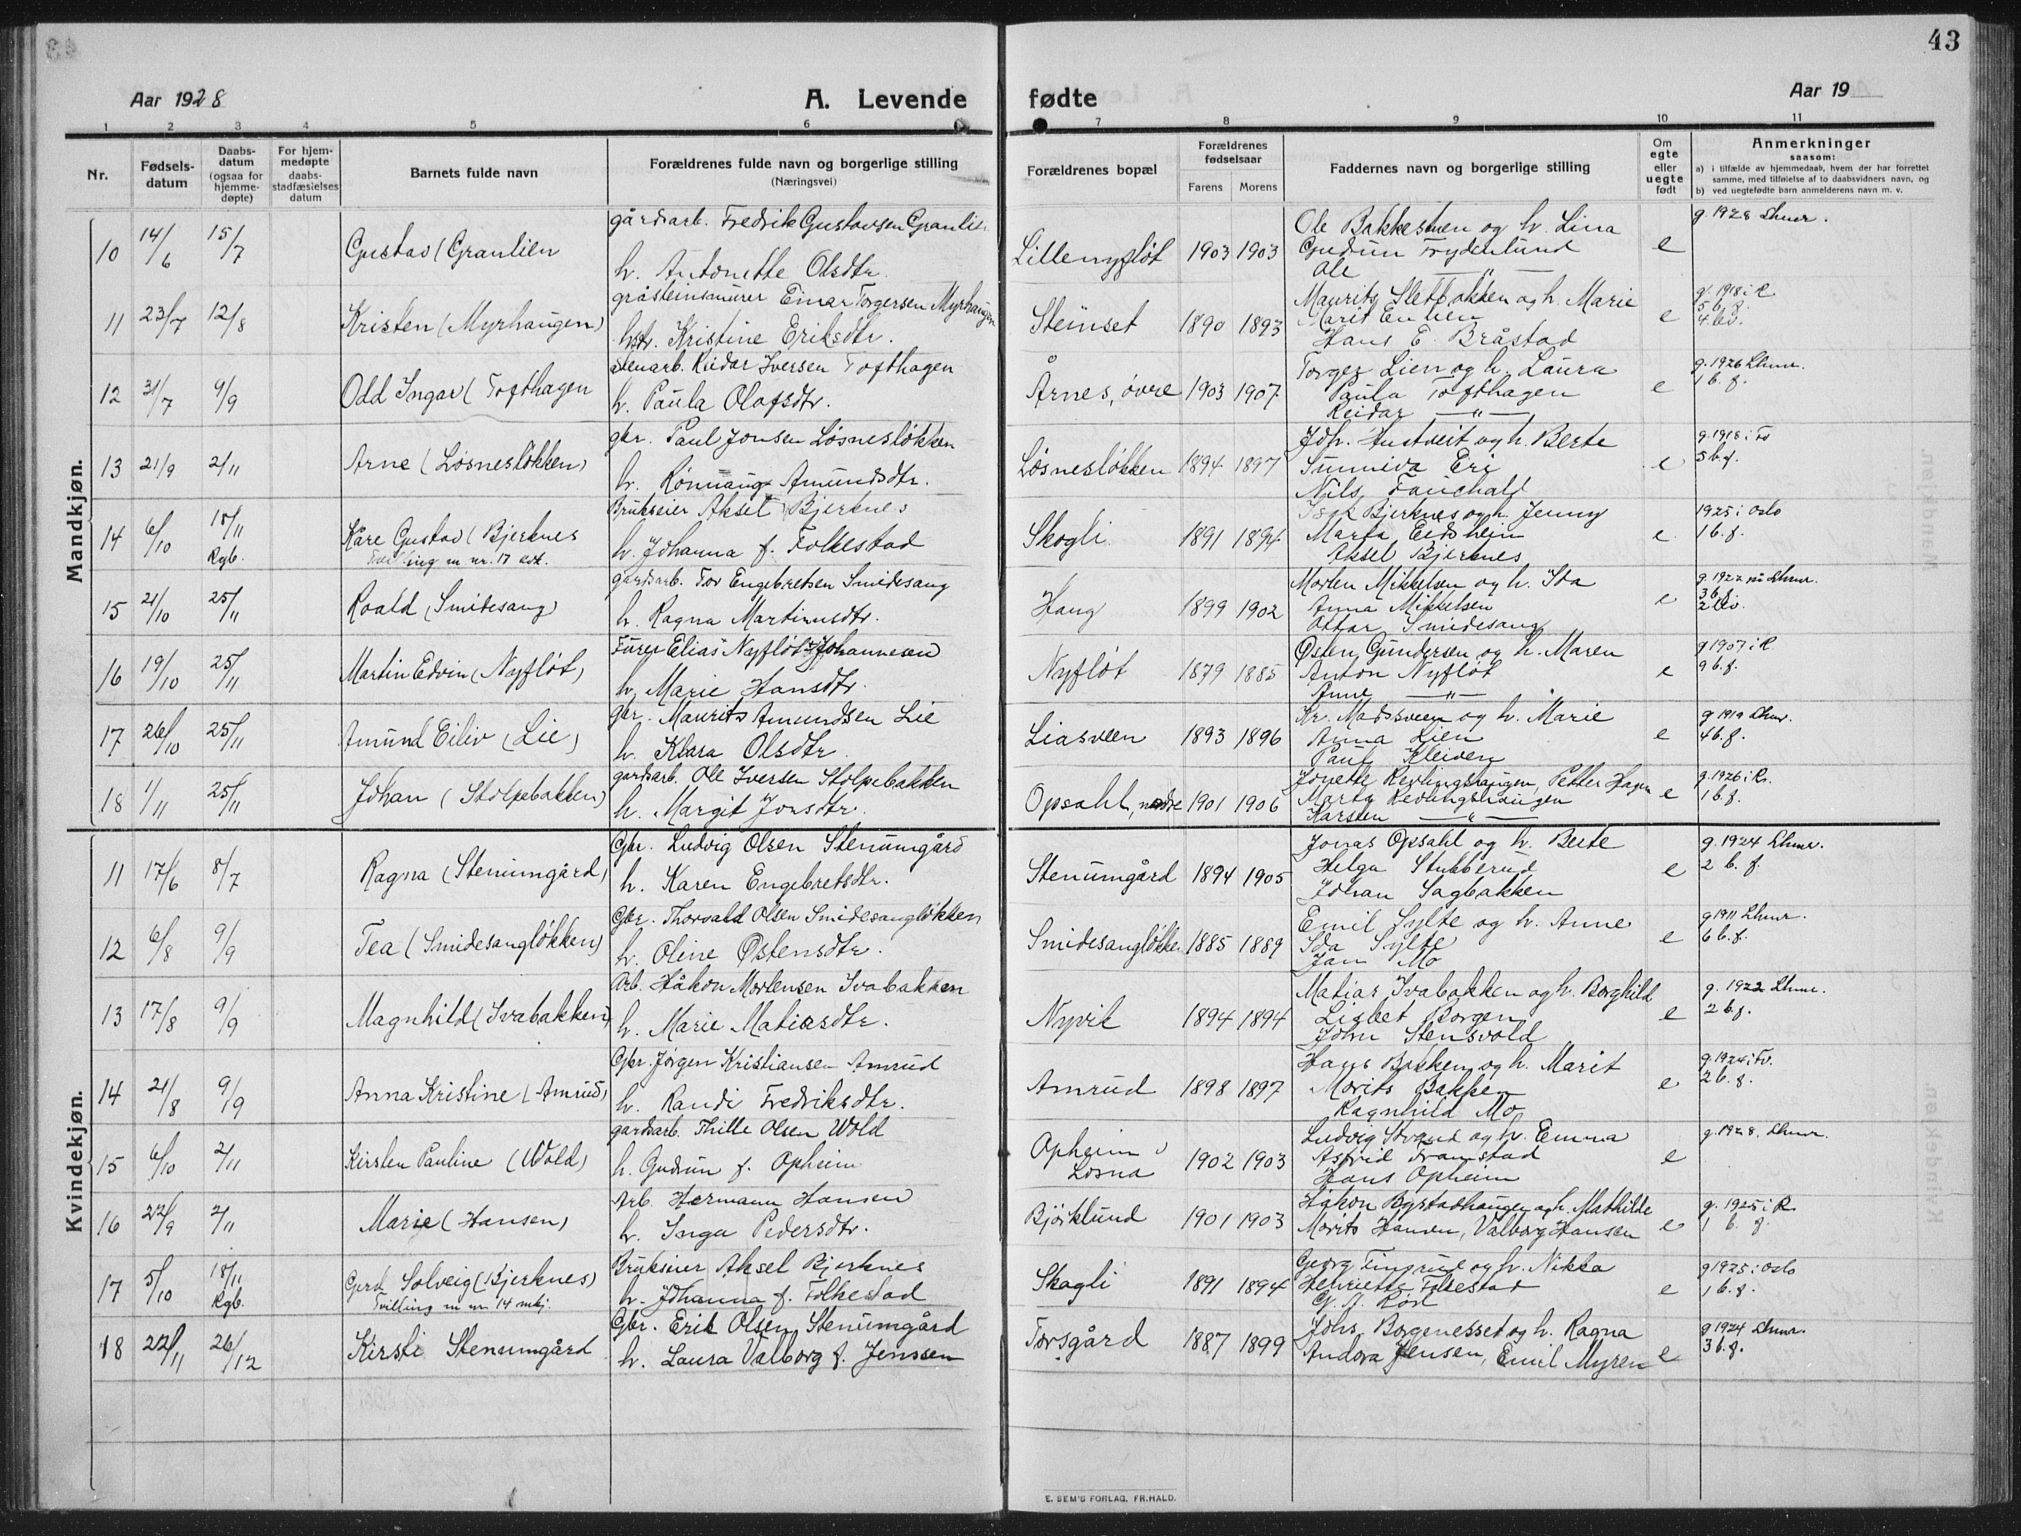 43
Aar 1928
A. Levende
fødte
Aar 19
1 2 3 4 5 6 7 8 9 10 11
Nr.
Fødsels-
datum
Daabs-
datum
(ogsaa for
hjemme-
døpte)
For hjem-
medøpte
daabs-
stadfæsielses
datum
Barnets fulde navn
Forældrenes fulde navn og borgerlige stilling
(Næringsvei)
Forældrenes bopæl
Forældrenes
fødselsaar
Farens Morens
Faddernes navn og borgerlige stilling
Om
egte
eller
uegte
født
Anmerkninger
saasom:
a) i tilfælde av hjemmedaab, hvem der har forrettet
samme, med tilføielse af to daabsvidners navn, og
b) ved uegtefødte barn anmelderens navn m. v.
Mandkjøn.
gårdsarb. Fredrik Gustavsen Granlien
10 14/6 15/7 Gustav (Granlien
h. Antonette Olsdtr.
Lillenyfløt 1903 1903
Ole Bakkestuen og h. Lina
Gudrun Frydenlund
Ole —"—
e
g. 1928 Lhmr.
gråsteinsmurer Einar Torgersen Myrhaugen
11 23/7 12/8 Kristen (Myrhaugen)
hstr. Kristine Eriksdtr.
Steinset 1890 1893
Maurits Sletbakken og h. Marie
Marit Enlien
Hans E. Bråstad
e
g. 1918 i R
5 b. f.
4 lev.
stenarb. Reidar Iversen Tofthagen
12 31/7 9/9 Odd Ingar (Tofthagen
h. Paula Olafsdtr.
Årnes, øvre 1903 1907
Torger Lien og h. Laura
Paula Tofthagen
Reidar —"—
e
g. 1926 Lhmr.
1 b. f.
gbr. Paul Jonsen Løsnesløkken
13 21/9 2/11 Arne (Løsnesløkken)
h. Rønnaug Amundsdtr.
Løsnesløkken 1894 1897
Joh. Hustveit og h. Berte
Sunniva Eri
Nils Fauchald
e
g. 1918 i Fo
5 b. f.
Brukseier Aksel Bjerknes
14 6/10 18/11 Rgb. Kåre Gustav (Bjerknes
Tvilling m nr. 17 kvk.
h. Johanna f. Folkestad
Skogli 1891 1894
Isak Bjerknes og h. Jenny
Marta Eidsheim
Aksel Bjerknes
e
1925 i Oslo
1 b. f.
gårdsarb. Tor Engebretsen Smidesang
15 21/10 25/11 Roald (Smidesang)
h. Ragna Martinusdtr.
Haug 1899 1902
Morten Mikkelsen og h. Ida
Anna Mikkelsen
Ottar Smidesang
e
g. 1922 Lhmr.
3 b. f.
2 lev.
Furer Elias Nyfløt Johannesen
16 19/10 25/11 Martin Edvin (Nyfløt)
h. Marie Hansdtr.
Nyfløt 1879 1885
Østen Gundersen og h. Maren
Anton Nyfløt
Anne —"—
e
g 1907 i R.
9 b. f.
gbr. Maurits Amundsen Lie
17 26/10 25/11 Amund Eiliv (Lie)
h. Klara Olsdtr.
Liasveen 1893 1896
Kr. Madssveen og h. Marie
Anna Lien
Paul Kleiven
e
g 1919 Lhmr.
4 b. f.
gårdsarb. Ole Iversen Stolpebakken
18 1/11 25/11 Johan (Stolpebakken)
h. Margit Jonsdtr.
Opsahl, nedre 1901 1906
Jonette Revlingshaugen, Petter Hagen
Marta Revlingshaugen
Karsten —"—
e
g. 1926 i R.
1 b. f.
Kvindekjøn.
Gbr. Ludvig Olsen Stenumgård
11 17/6 8/7 Ragna (Stenumgård)
h. Karen Engebretsdtr.
Stenumgård 1894 1905
Jonas Opsahl og h. Berte
Helga Stubberud
Johan Sagbakken
e
g. 1924 Lhmr.
2 b. f.
Gbr. Thorvald Olsen Smidesangløkken
12 6/8 9/9 Tea (Smidesangløkken)
h. Oline Østensdtr.
Smidesangløkken 1885 1889
Emil Sylte og h. Anne
Ida Sylte
Jam Mo
e
g 1911 Lhmr.
6 b. f.
Arb. Håkon Mortensen Ivabakken
13 17/8 9/9 Magnhild (Ivabakken)
h. Marie Matiasdtr.
Nyvik 1894 1894
Matias Ivabakken og h. Borghild
Lisbet Borgen
John Stensvold
e
g. 1922 Lhmr.
2 b. f.
Gbr. Jørgen Kristiansen Amrud
14 21/8 9/9 Anna Kristine (Amrud)
h. Randi Fredriksdtr.
Amrud 1898 1897
Hans Bakken og h. Marit
Morits Bakken
Ragnhild Mo
e
g. 1924 i Fv.
2 b. f.
gårdsarb. Thille Olsen Wold
15 6/10 2/11 Kirsten Pauline (Wold)
h. Gudrun f. Opheim
Opheim i
Losna 1902 1903
Ludvig Strand og h. Emma
Astrid Tramstad
Hans Opheim
e
g. 1928. Lhmr.
Arb. Hermann Hansen
16 22/9 2/11 Marie (Hansen)
h. Inga Pedersdtr.
Bjørklund 1901 1903
Håkon Rystadhaugen og h. Mathilde
Morits Hansen, Valborg Hansen
e
g. 1925 i R.
1 b. f.
Brukseier Aksel Bjerknes
17 5/10 18/11 Rgb. Gerd Solveig (Bjerknes)
Tvilling m nr. 14 mkj.
h. Johanna f. Folkestad
Skogli 1891 1894
Georg Tingrud og h. Nikka
Henriette Folkestad
G. A. Röst
e
g 1925 i Oslo
1 b. f.
Gbr. Erik Olsen Stenumgård
18 22/11 26/12 Kirsti Stenumgård
h. Laura Valborg f. Jenssen
Torsgård 1887 1899
Johs. Borgenesset og h. Ragna
Andora Jensen, Emil Myren
e
g 1924 Lhmr.
3 b. f.
E. SEM'S FORLAG, FR.HALD.